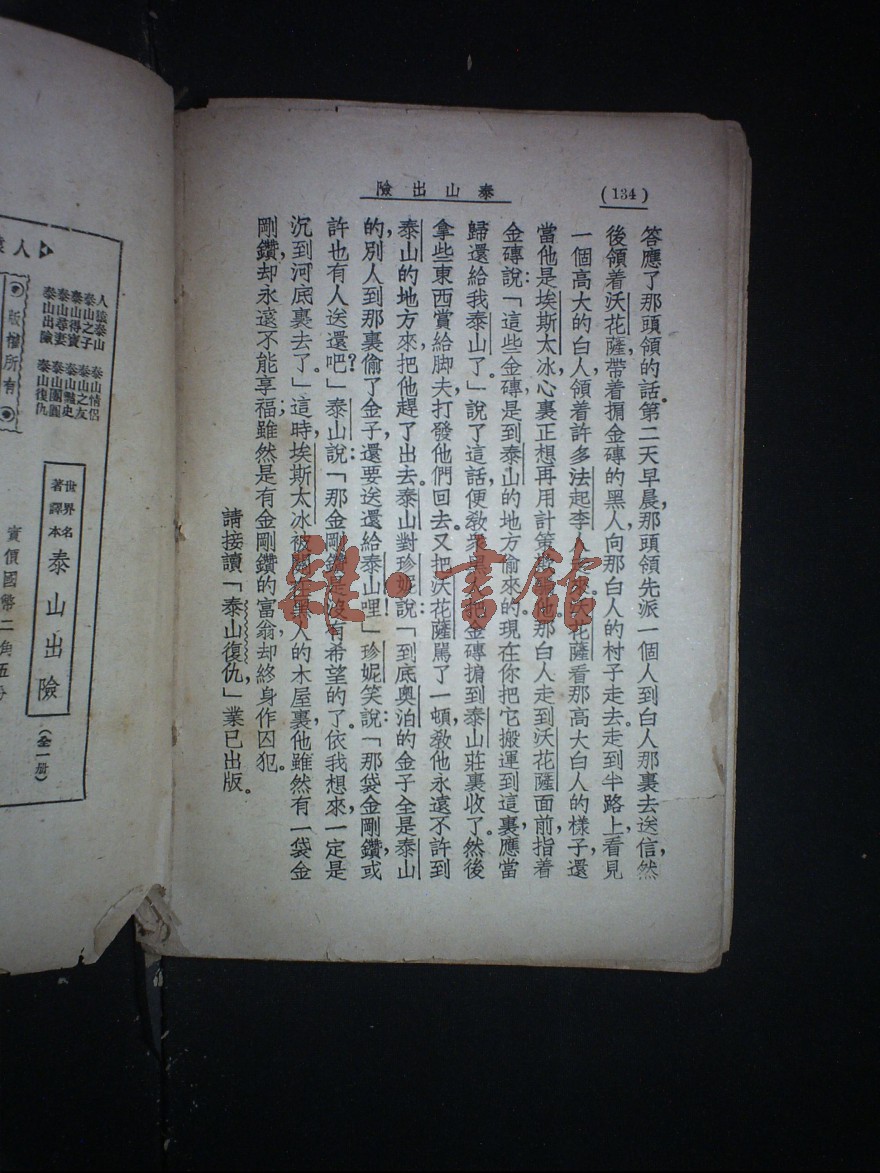 (134)
泰山出險
答應了那頭領的話。第二天早晨，那頭領先派一個人到白人那裏去送信，然
後領着沃花薩，帶着掮金磚的黑人，向那白人的村子走去。走到半路上，看見
一個高大的白人，領着許多法起李人 沃花薩看那高大白人的樣子，還
當他是埃斯太冰，心裏正想再用計策 他，那白人走到沃花薩面前，指着
金磚說：「這些金磚，是到泰山的地方偷來的，現在你把它搬運到這裏，應當
歸還給我泰山了。」說了這話，便敎衆黑人把金磚掮到泰山莊裏收了。然後
拿些東西賞給脚夫，打發他們回去。又把沃花薩罵了一頓，敎他永遠不許到
泰山的地方來，把他趕了出去。泰山對珍妮說：「到底奧泊的金子，全是泰山
的，別人到那裏偷了金子，還要送還給泰山哩！」珍妮笑說：「那袋金剛鑽，或
許也有人送還吧？」泰山說：「那金剛鑽是沒有希望的了。依我想來，一定是
沉到河底裏去了。」這時，埃斯太冰被關在黑人的木屋裏，他雖然有一袋金
剛鑽，却永遠不能享福，雖然是有金剛鑽的富翁，却終身作囚犯。
請接讀「泰山復仇，」業已出版。
人猿泰山
泰山之子
泰山得寶
泰山尋妻
泰山出險
泰山情侶
泰山之友
泰山豔史
泰山團圓
泰山復仇
版權所有
世界名
著譯本
泰山出險
(全一册)
實價國幣二角五分
雜·書館